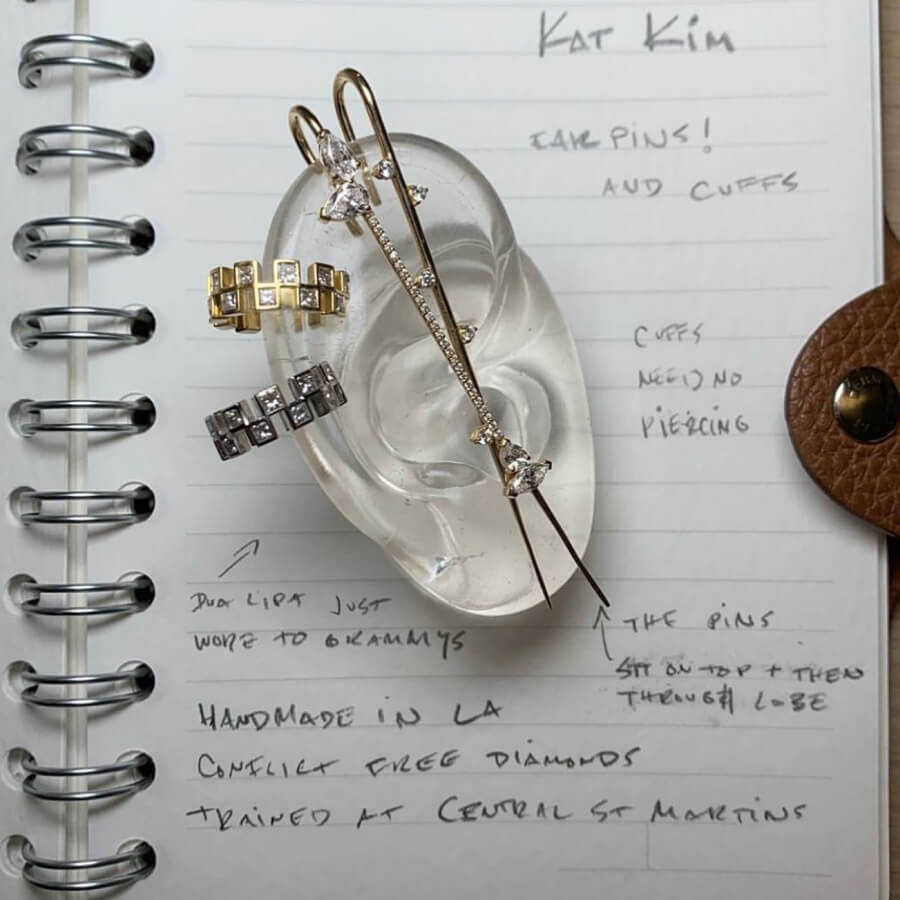 KAT KIM
EAR PINS!
AND CUFFS
CUFFS
NEED NO
PIERCING
DUA LIPA JUST
WORE TO GRAMMYS
THE PINS
SIT ON TOP + THEN
THROUGH LOBE
HANDMADE IN LA
CONFLICT FREE DIAMONDS
TRAINED AT CENTRAL ST MARTINS